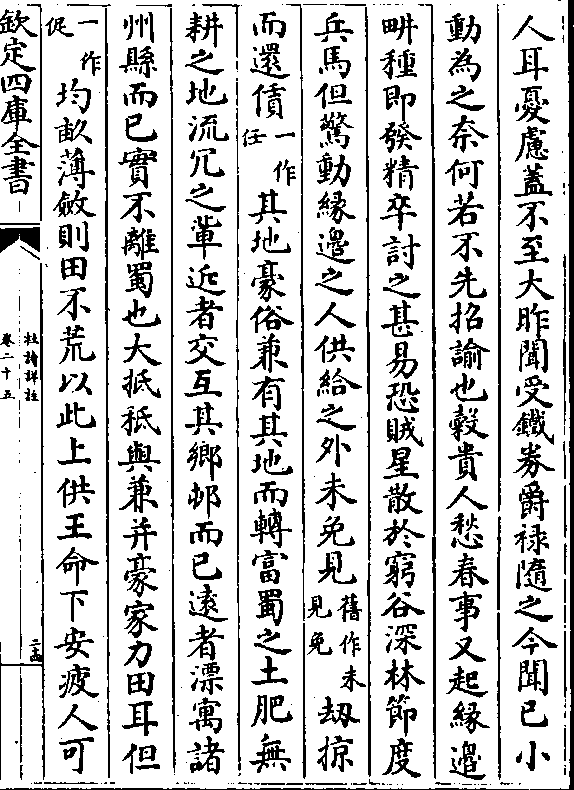 人耳憂慮蓋不至大昨聞受鐵券爵禄隨之今聞已小
動為之奈何若不先招諭也穀貴人愁春事又起緣邉
畊種即發精卒討之甚易恐賊星散於窮谷深林節度
兵馬但驚動緣邉之人供給之外未免見舊作未見免刼掠
而還債一作任其地豪俗兼有其地而轉富蜀之土肥無
耕之地流冗之軰近者交互其鄉邨而已遠者漂寓諸
州縣而已實不離蜀也大抵秪與兼并豪家力田耳但
一作促均畝薄斂則田不荒以此上供王命下安疲人可
欽定四庫全書
杜詩詳註
卷二十五